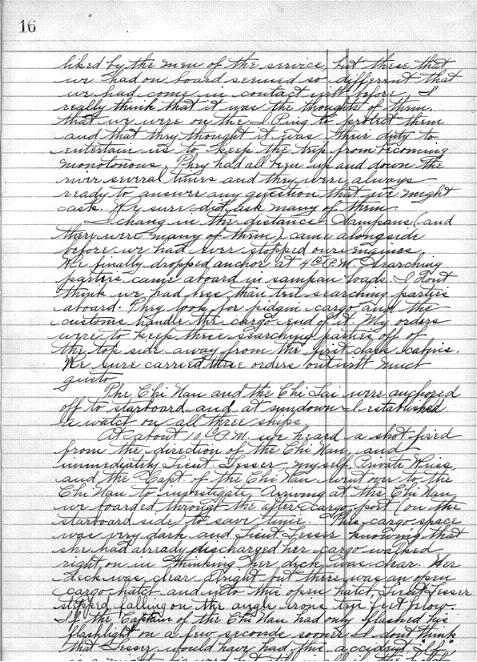 16
liked by the men of the service, but these that
we had on board seemed so different that
we had come in contact with before, I
really think that it was the thoughts of them,
that we were on the I Ping to protect them
and that they thought it was their duty to
entertain us to keep the trip from becoming
monotonous. They had all been up and down the
river several times and they were always
ready to answer any question that we might
ask. We sure did ask many of them.
I chang in the distance. Sampans (and
there were many of them) came alongside
before we had ever stopped our engines.
We finally dropped anchor at 4 P.M. Searching
parties came aboard in sampan loads. I don't
think we had less than ten searching parties
aboard. They look for pidgin cargo and the
customs handle the cargo end of it. My orders
were to keep these searching parties off of
the top side away from the first class cabins.
We sure carried these orders out with much
gusto
The Chi Nan and the Chi Tai were anchored
off to starboard and at sundown I established
a watch on all three ships.
At about 10 P.M. we heard a shot fired
from the direction of the Chi Nan, and
immediately Lieut. Lesser, myself, Private Kriss,
and the Capt. of the Chi Nan went over to the
Chi Nan to investigate. Arriving at the Chi Nan
we boarded through the after cargo port (on the
starboard side to save time. This cargo space
was very dark and Lieut. Lesser knowing that
she had already discharged her cargo walked
right on in thinking her deck was clear. Her
deck was clear alright but there was an open
cargo hatch and into this open hatch, Lieut. Lesser
stepped, falling on the angle irons ten feet below.
If the Captain of the Chi Nan had only flashed his
flashlight on a few seconds sooner I don't think
that Lesser would have had this accident.